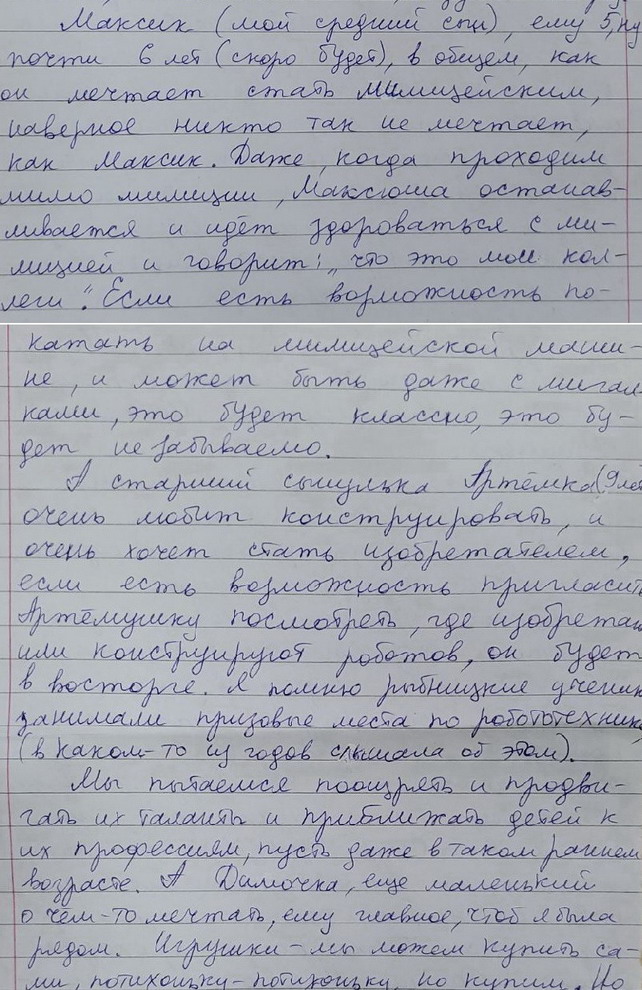 Максик (мой средний сын), ему 5, ну
почти 6 лет (скоро будет), в общем, как
он мечтает стать милицейским,
наверное никто так не мечтает,
как Максик. Даже, когда проходим
мимо милиции, Максюша останав-
ливается и идёт здороваться с ми-
лицией и говорит: „что это мои кол-
леги". Если есть возможность по-
катать на милицейской маши-
не, и может быть даже с мигал-
ками, это будет классно, это бу-
дет незабываемо.
А старший сынулька Артёмка (9 лет
очень любит конструировать, и
очень хочет стать изобретателем,
если есть возможность пригласить
Артёмушку посмотреть, где изобретают
или конструируют роботов, он будет
в восторге. Я помню рыбницкие ученик
занимали призовые места по робототехник
(в каком-то из годов слышала об этом).
Мы пытаемся поощрять и продви-
гать их таланты и приближать детей к
их профессиям, пусть даже в таком раннем
возрасте. А Димочка, еще маленький
о чём-то мечтать, ему главное, чтоб я была
рядом. Игрушки - мы можем купить са-
ми, потихоньку-потихоньку, но купим. Но